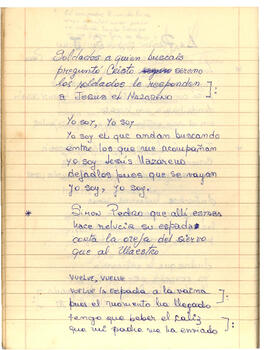 Soldados a quien buscais
preguntó Cristo sereno
los soldados le responden
a Jesus el Nazareno
Yo soy, Yo soy
Yo soy el que andan buscando
entre los que me acompañan
yo soy Jesús Nazareno
dejadlos pues que se vayan
yo soy, yo soy.
* Simon Pedro que alli estaba
hace relucir su espada
corta la oreja del siervo
que al Maestro
vuelve, vuelve
vuelve la espada a la vaina
pues el momento ha llegado
tengo que beber el caliz
que mi padre me ha enviado